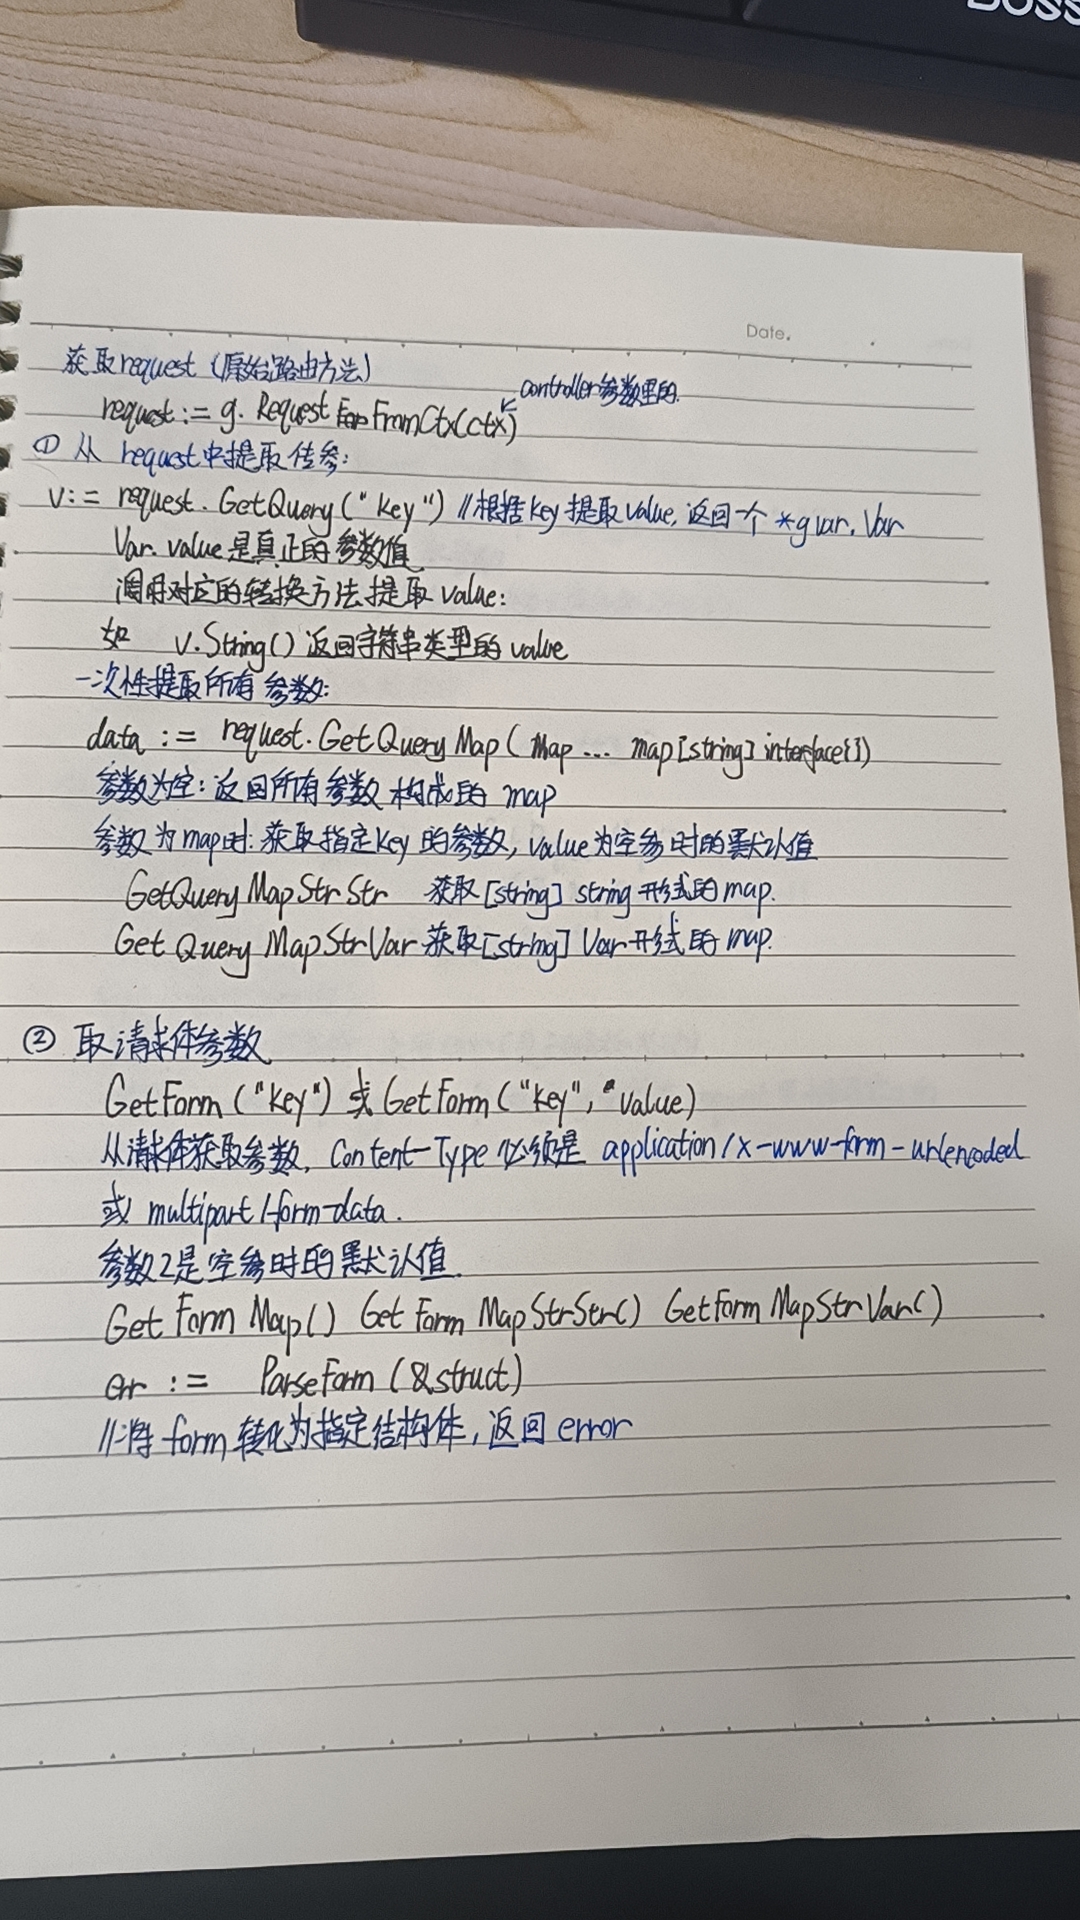 BOSS
Date.
获取request (原始路由方法)
controller参数里的.
request:= g. Request FromCtx(ctx)
① 从 request中提取传参:
v:= request. GetQuery("key") //根据key提取value, 返回一个 *gvar. Var
Var. value是真正的参数值
调用对应的转换方法提取 value:
如 v.String() 返回字符串类型的 value
一次性提取所有参数:
data := request. GetQueryMap( Map ... map[string] interface{})
参数为空: 返回所有参数构成的 map
参数为map时: 获取指定key的参数, value为空参时的默认值
GetQueryMapStrStr 获取[string] string形式的 map.
GetQueryMapStrVar 获取[string] Var形式的 map.
② 取请求体参数
GetForm ("key") 或 GetForm ("key", "value)
从请求体获取参数, Content-Type 必须是 application/x-www-form-urlencoded
或 multipart/form-data.
参数2是空参时的默认值.
GetFormMap() GetFormMapStrStr() GetFormMapStrVar()
err := ParseForm (&struct)
//将 form 转化为指定结构体, 返回 error